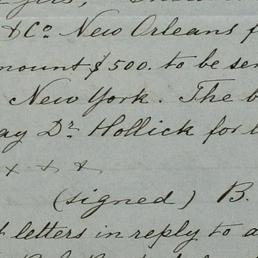 & Co New Orleans f
mount $500. to be sen
New York. The b
ay Dr. Hollick for
x x x
(signed) B.
letters in reply to a